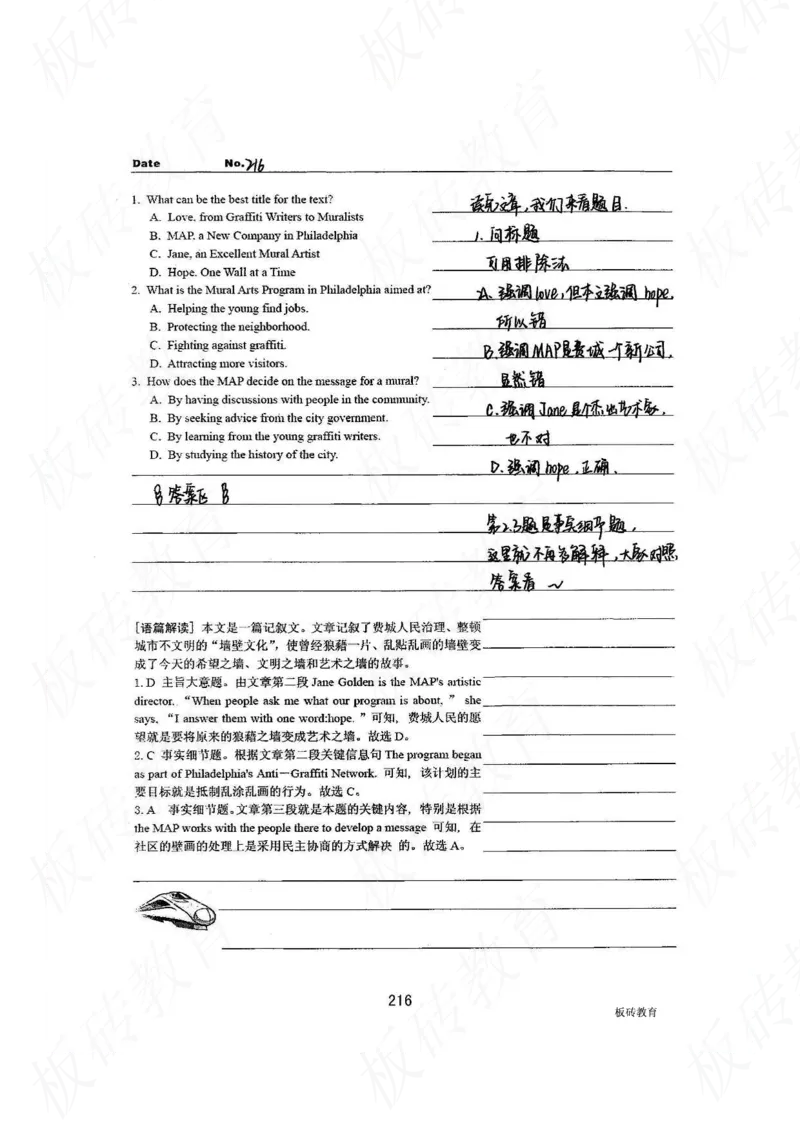 Date No.216
1. What can be the best title for the text?
A. Love, from Graffiti Writers to Muralists
B. MAP, a New Company in Philadelphia
C. Jane, an Excellent Mural Artist
D. Hope, One Wall at a Time
2. What is the Mural Arts Program in Philadelphia aimed at?
A. Helping the young find jobs.
B. Protecting the neighborhood.
C. Fighting against graffiti.
D. Attracting more visitors.
3. How does the MAP decide on the message for a mural?
A. By having discussions with people in the community.
B. By seeking advice from the city government.
C. By learning from the young graffiti writers.
D. By studying the history of the city.
读完文章，我们来看题目.
1. 问标题
可用排除法
A. 强调love，但本文强调 hope，
所以错
B. 强调MAP是费城一个新公司，
显然错
C. 强调 Jane 是个杰出艺术家，
也不对
D. 强调 hope，正确.
答案区
第2.3题是事实细节题，
这里就不再多解释，大家对照
答案看 ~
[语篇解读] 本文是一篇记叙文。文章记叙了费城人民治理、整顿
城市不文明的“墙壁文化”，使曾经狼藉一片、乱贴乱画的墙壁变
成了今天的希望之墙、文明之墙和艺术之墙的故事。
1. D 主旨大意题。由文章第二段 Jane Golden is the MAP's artistic
director. “When people ask me what our program is about, ” she
says, “I answer them with one word:hope. ” 可知，费城人民的愿
望就是要将原来的狼藉之墙变成艺术之墙。故选 D。
2. C 事实细节题。根据文章第二段关键信息句 The program began
as part of Philadelphia's Anti－Graffiti Network. 可知，该计划的主
要目标就是抵制乱涂乱画的行为。故选 C。
3. A 事实细节题。文章第三段就是本题的关键内容，特别是根据
the MAP works with the people there to develop a message 可知，在
社区的壁画的处理上是采用民主协商的方式解决 的。故选 A。
216
板砖教育